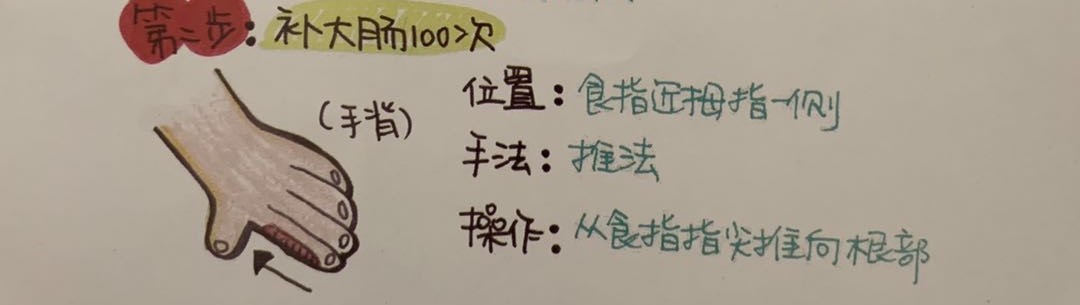 第二步：补大肠100次
(手背)
位置：食指近拇指一侧
手法：推法
操作：从食指指尖推向根部